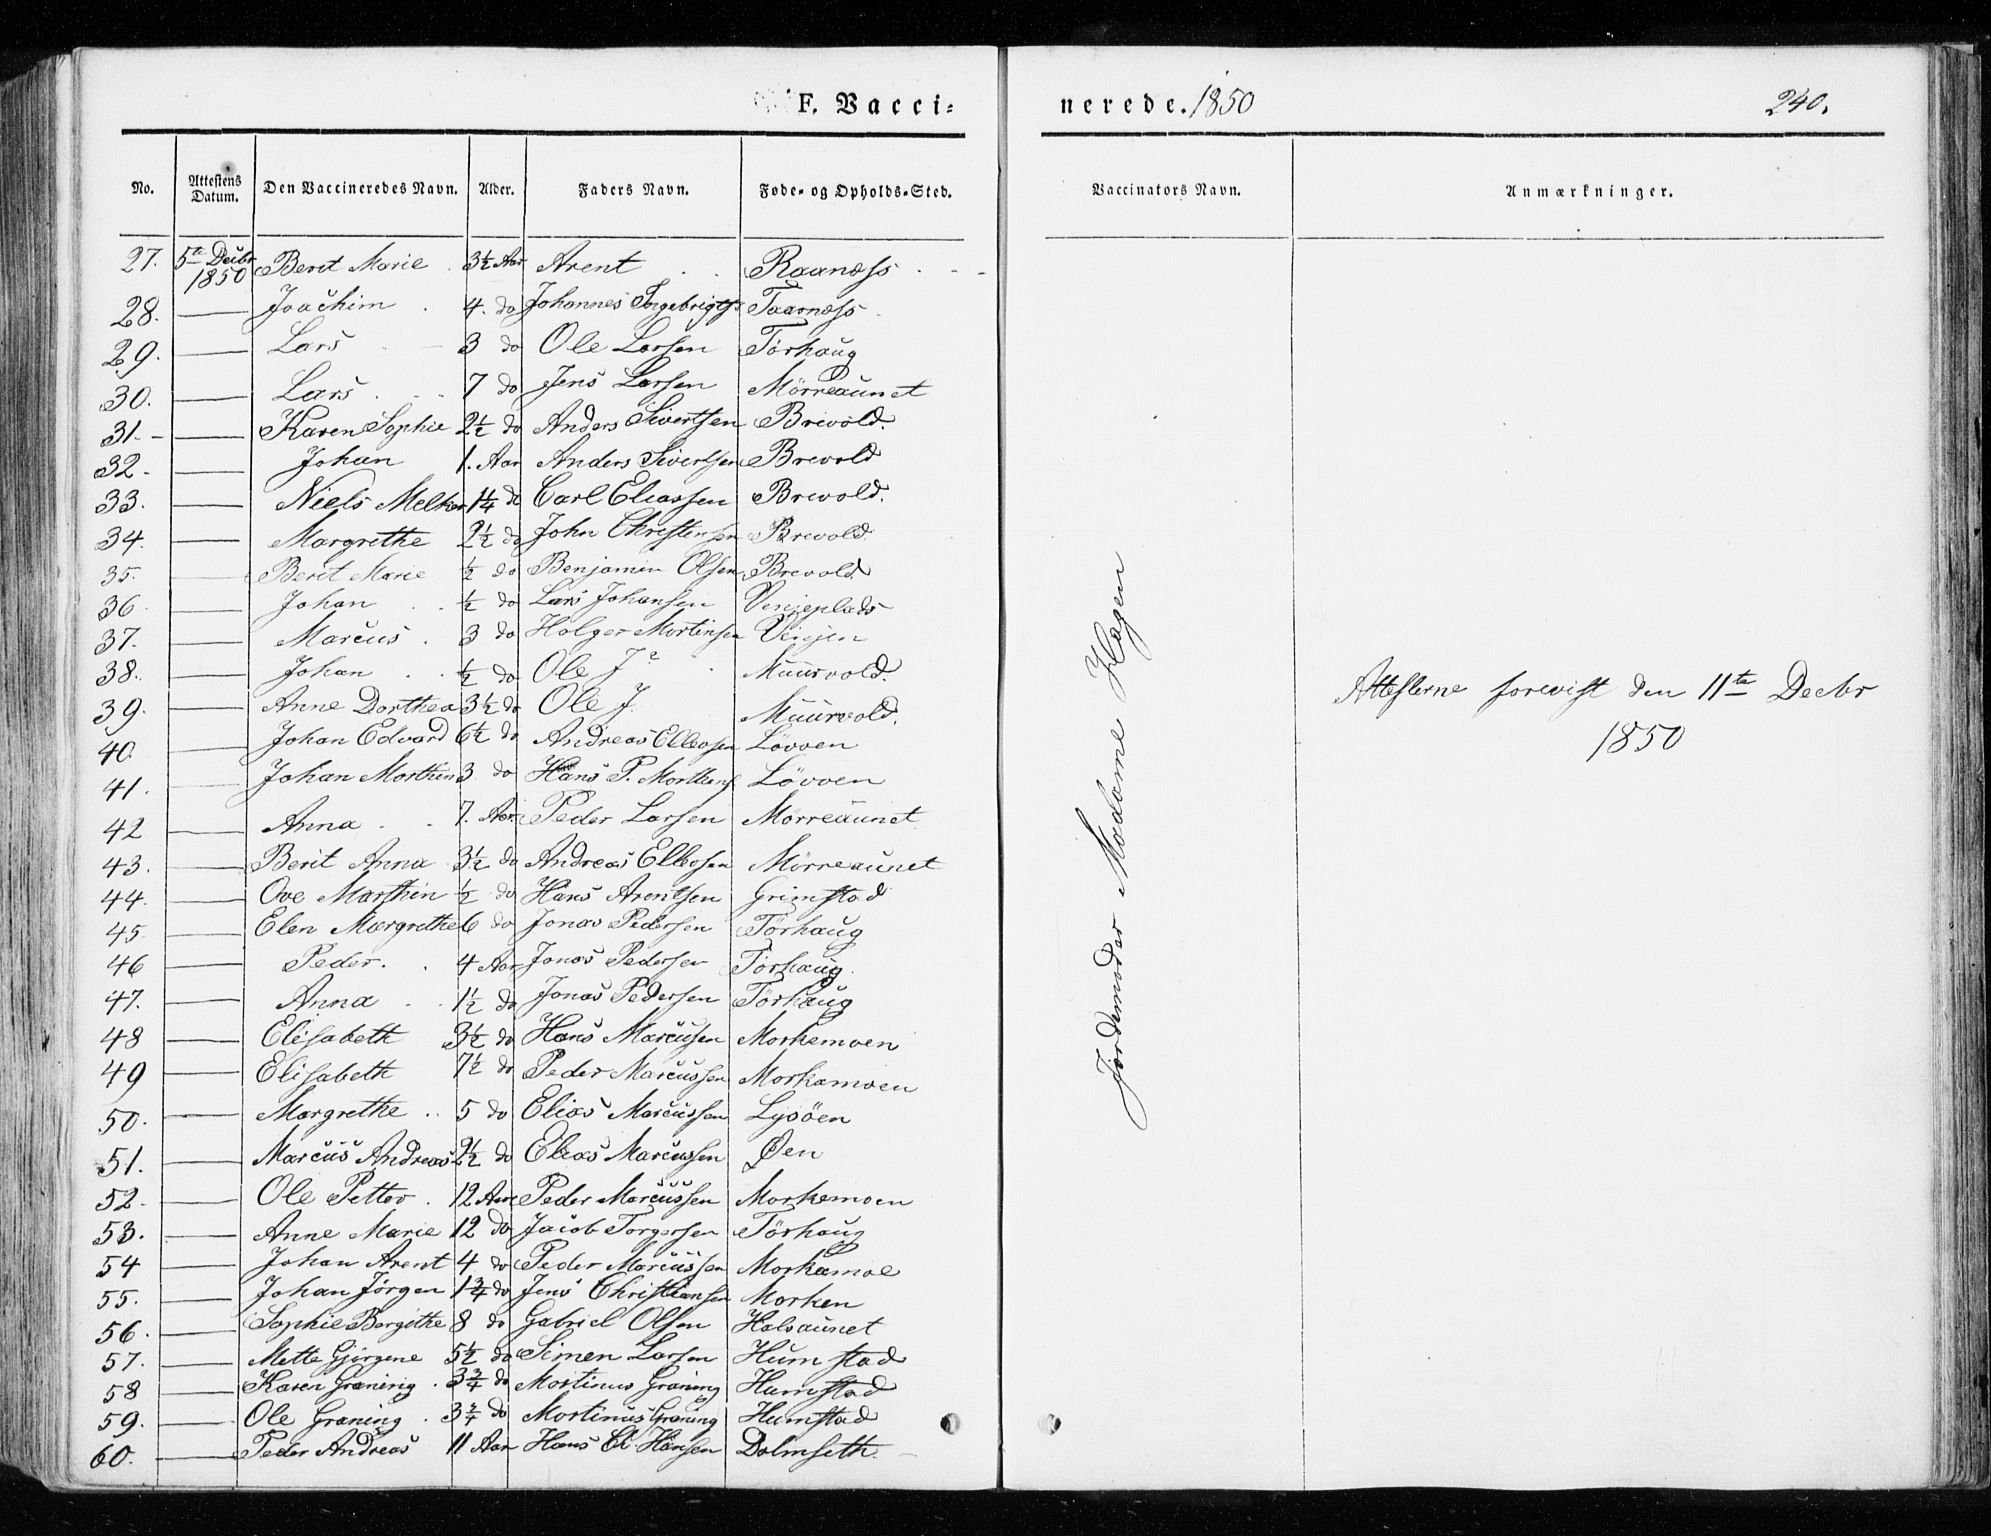 F. Vacci=
nerede. 1850
240.
No. Attestens Datum. Den Vaccineredes Navn. Alder. Faders Navn. Føde- og Opholds-Sted. Vaccinators Navn. Anmærkninger.
27. 5te Decbr 1850 Berit Marie 3½ Aar Arent Raanæss
28. — Joachim 4. do Johannes Ingebrigts Taarnæss
29. — Lars 3 do Ole Larsen Törhaug
30. — Lars 7 do Jens Larsen Mörreaunet
31. — Karen Sophie 2½ do Anders Sivertsen Brevold.
32. — Johan 1. Aar Anders Sivertsen Brevold
33. — Niels Melkor 1¼ do Carl Eliassen Brevold.
34. — Margrethe 2½ do John Christensen Brevold
35. — Berit Marie ½ do Benjamin Olsen Brevold
36 — Johan ½ do Lars Johansen Venjeplads
37. — Marcus 3 do Holger Mortinsen Venjen
38. — Johan ½ do Ole J Muurvold.
39. — Anne Dorthea 3½ do Ole J. Muurvold.
40. — Johan Edvard 6½ do Andreas Ellevsen Lövoen
41. — Johan Morthin 3 do Hans P. Morthens Lövoen
42 — Anna 7. Aar Peder Larsen Mörreaunet
43. — Berit Anna 3½ do Andreas Ellevsen Mörreaunet
44. — Ove Marthin ½ do Hans Arentsen Grimstad
45 — Elen Margrethe 6 do Jonas Pedersen Törhaug
46 — Peder. 4 Aar Jonas Pedersen Törhaug.
47. — Anna 1½ do Jonas Pedersen Törhaug
48 — Elisabeth 3½ do Hans Marcussen Morkemoen
49 — Elisabeth 7½ do Peder Marcussen Morkemoen
50. — Margrethe 5 do Elias Marcussen Lysöen
51. — Marcus Andreas 2½ do Elias Marcussen Øen
52. — Ole Petter 12 Aar Peder Marcussen Morkemoen
53. — Anne Marie 12 do Jacob Torgersen Törhaug
54 — Johan Arent 4 do Peder Marcussen Morkemoe
55. — Johan Jörgen 1¾ do Jens Christiansen Morken
56. — Sophie Bergithe 8 do Gabriel Olsen Halsaunet
57. — Mette Gjörgene 5½ do Simen Larsen Humstad
58 — Karen Græning 3¾ do Mortinus Græning Humstad
59. — Ole Græning 3¾ do Mortinus Græning Humstad
60. — Peder Andreas 11 Aar Hans Chr Hansen Dolmseth.
Jordemoder Madame Hagen
Attesterne forevist den 11te Decbr
1850